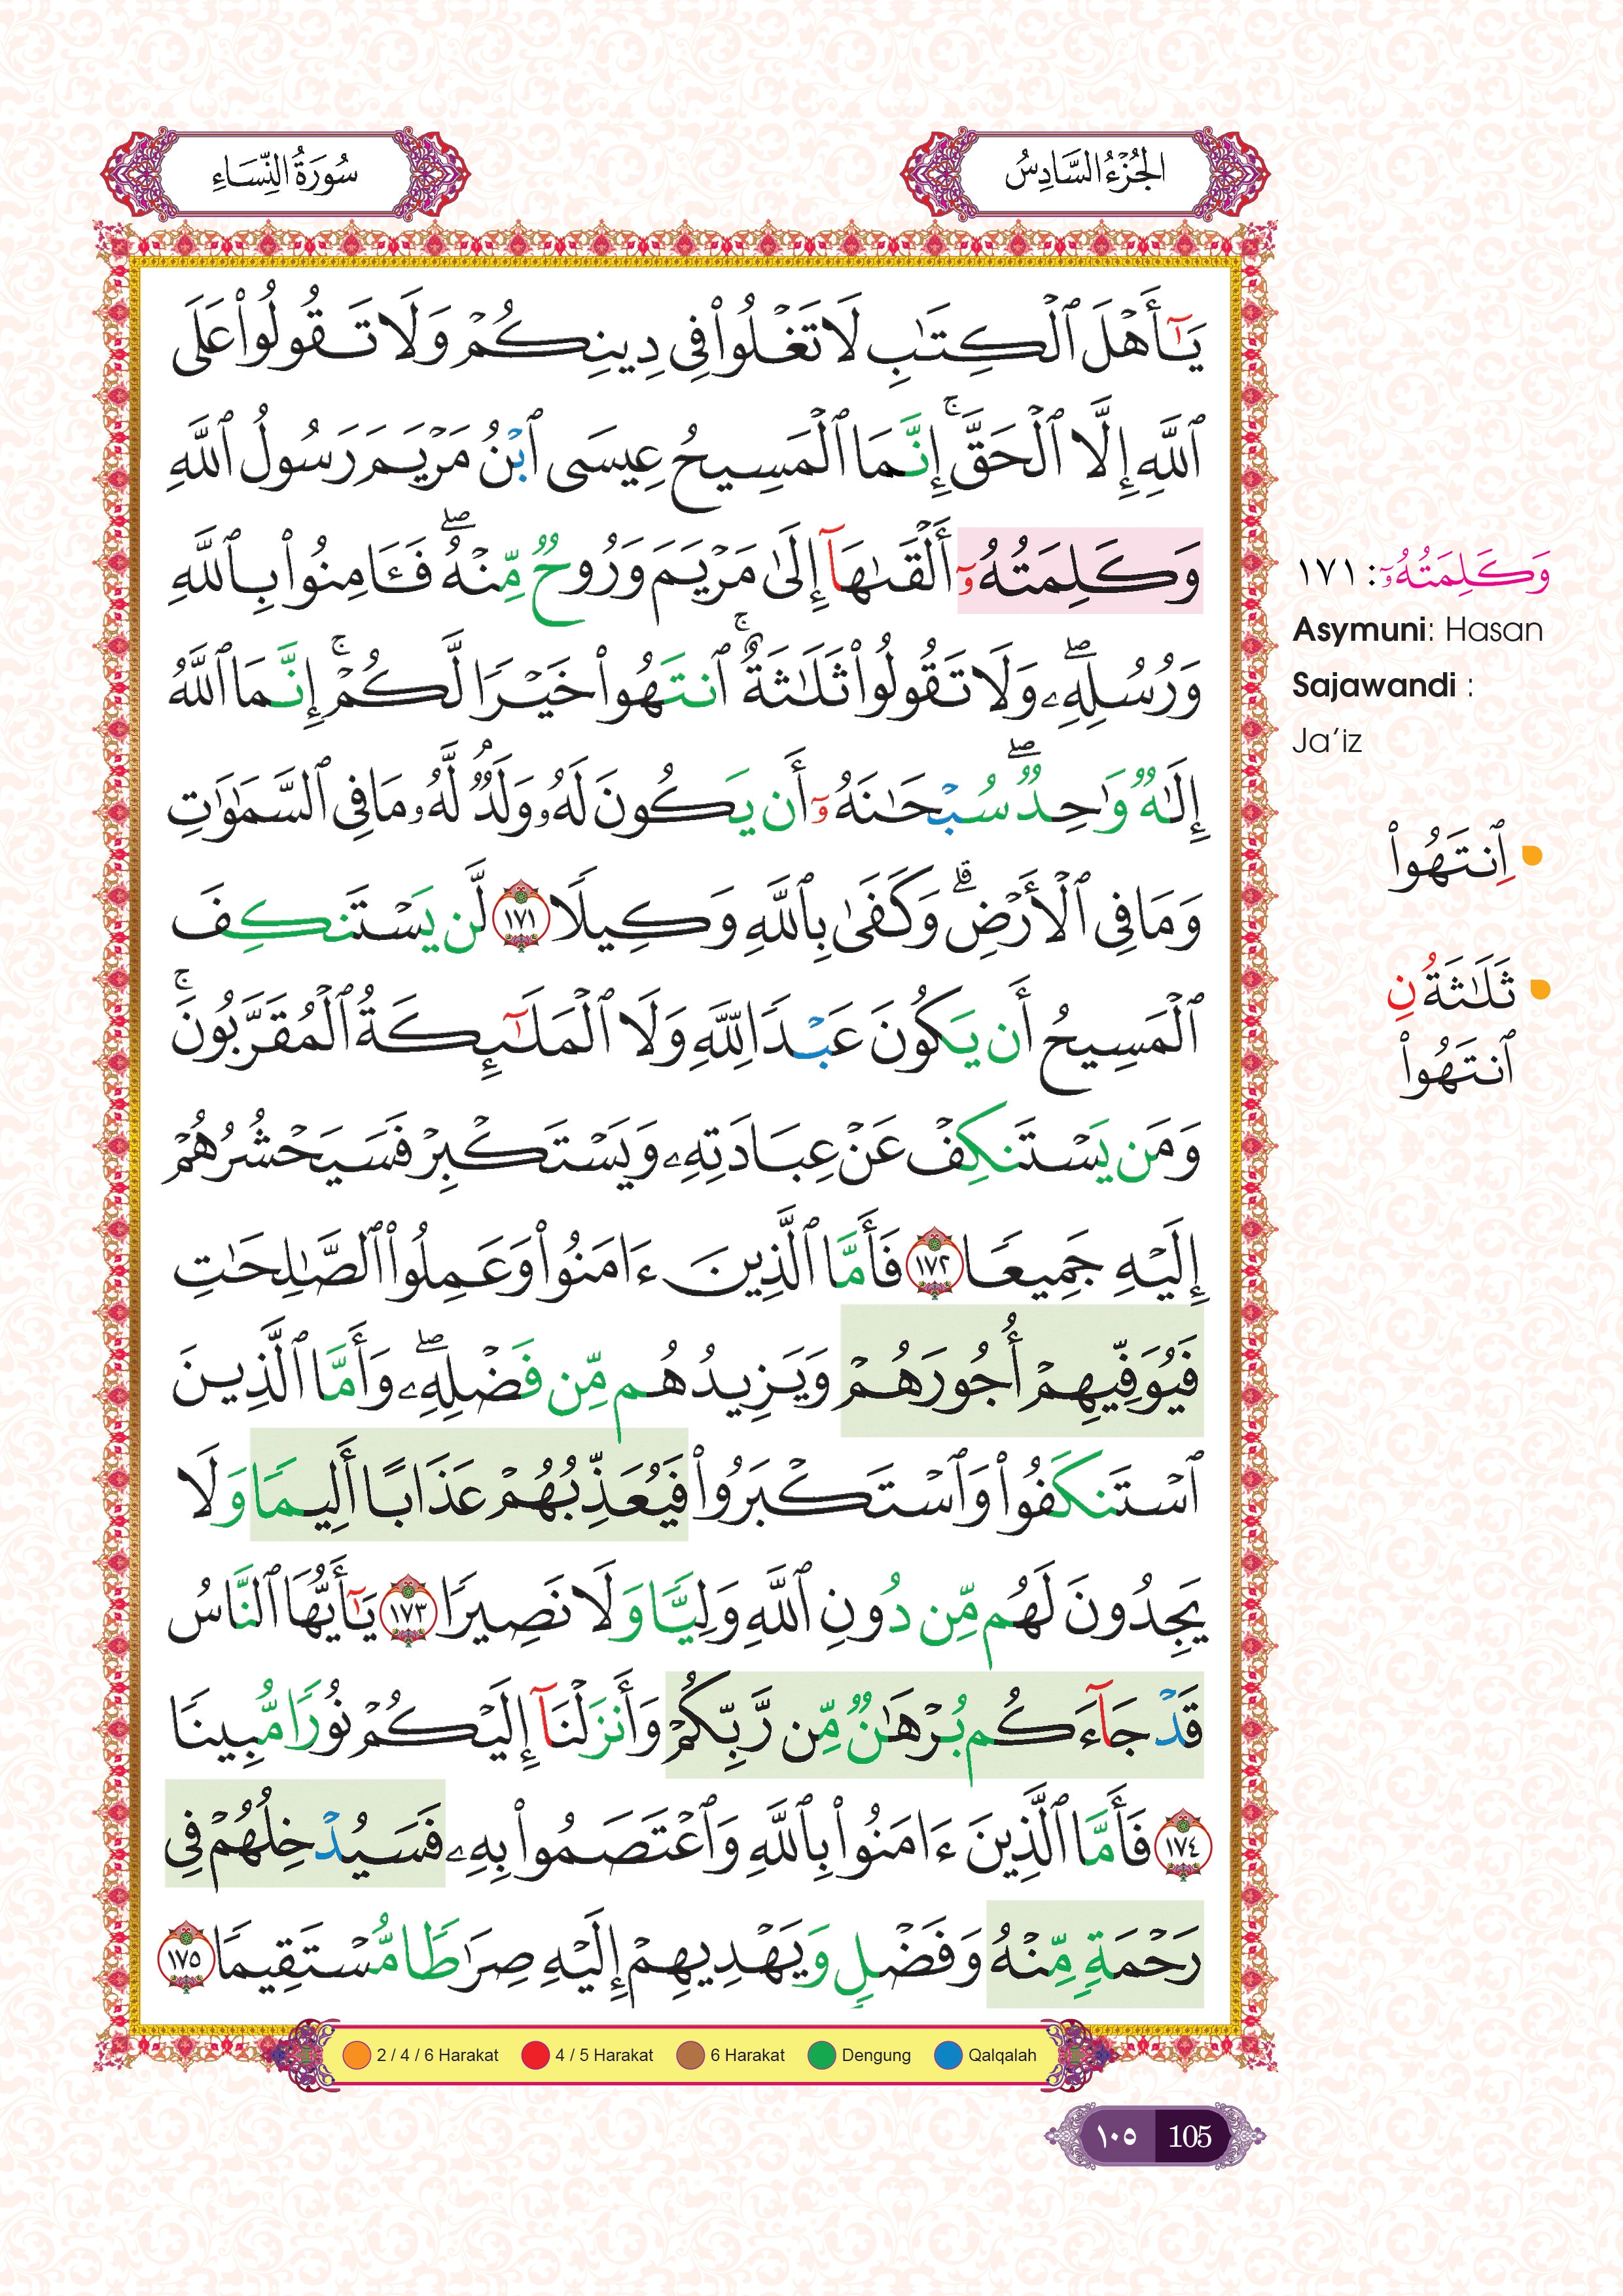 الجُزْءُ السَّادِسُ
سُورَةُ النِّسَاءِ
يَٰٓأَهۡلَ ٱلۡكِتَٰبِ لَا تَغۡلُواْ فِي دِينِكُمۡ وَلَا تَقُولُواْ عَلَى
ٱللَّهِ إِلَّا ٱلۡحَقَّۚ إِنَّمَا ٱلۡمَسِيحُ عِيسَى ٱبۡنُ مَرۡيَمَ رَسُولُ ٱللَّهِ
وَكَلِمَتُهُۥٓ أَلۡقَىٰهَآ إِلَىٰ مَرۡيَمَ وَرُوحٞ مِّنۡهُۖ فَـَٔامِنُواْ بِٱللَّهِ
وَرُسُلِهِۦۖ وَلَا تَقُولُواْ ثَلَٰثَةٌۚ ٱنتَهُواْ خَيۡرٗا لَّكُمۡۚ إِنَّمَا ٱللَّهُ
إِلَٰهٞ وَٰحِدٞۖ سُبۡحَٰنَهُۥٓ أَن يَكُونَ لَهُۥ وَلَدٞۘ لَّهُۥ مَا فِي ٱلسَّمَٰوَٰتِ
وَمَا فِي ٱلۡأَرۡضِۗ وَكَفَىٰ بِٱللَّهِ وَكِيلٗا ١٧١ لَّن يَسۡتَنكِفَ
ٱلۡمَسِيحُ أَن يَكُونَ عَبۡدٗا لِّلَّهِ وَلَا ٱلۡمَلَٰٓئِكَةُ ٱلۡمُقَرَّبُونَۚ
وَمَن يَسۡتَنكِفۡ عَنۡ عِبَادَتِهِۦ وَيَسۡتَكۡبِرۡ فَسَيَحۡشُرُهُمۡ
إِلَيۡهِ جَمِيعٗا ١٧٢ فَأَمَّا ٱلَّذِينَ ءَامَنُواْ وَعَمِلُواْ ٱلصَّٰلِحَٰتِ
فَيُوَفِّيهِمۡ أُجُورَهُمۡ وَيَزِيدُهُم مِّن فَضۡلِهِۦۖ وَأَمَّا ٱلَّذِينَ
ٱسۡتَنكَفُواْ وَٱسۡتَكۡبَرُواْ فَيُعَذِّبُهُمۡ عَذَابًا أَلِيمٗا وَلَا
يَجِدُونَ لَهُم مِّن دُونِ ٱللَّهِ وَلِيّٗا وَلَا نَصِيرٗا ١٧٣ يَٰٓأَيُّهَا ٱلنَّاسُ
قَدۡ جَآءَكُم بُرۡهَٰنٞ مِّن رَّبِّكُمۡ وَأَنزَلۡنَآ إِلَيۡكُمۡ نُورٗا مُّبِينٗا
١٧٤ فَأَمَّا ٱلَّذِينَ ءَامَنُواْ بِٱللَّهِ وَٱعۡتَصَمُواْ بِهِۦ فَسَيُدۡخِلُهُمۡ فِي
رَحۡمَةٖ مِّنۡهُ وَفَضۡلٖ وَيَهۡدِيهِمۡ إِلَيۡهِ صِرَٰطٗا مُّسۡتَقِيمٗا ١٧٥
وَكَلِمَتُهُۥٓ: ١٧١
Asymuni: Hasan
Sajawandi :
Ja'iz
اِنتَهُواْ
ثَلَٰثَةُ نِ
ٱنتَهُواْ
2 / 4 / 6 Harakat 4 / 5 Harakat 6 Harakat Dengung Qalqalah
١٠٥ 105